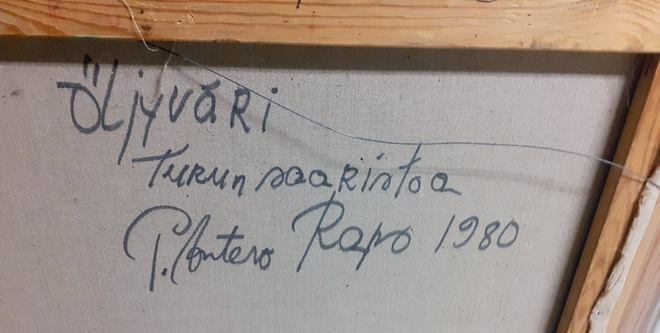 Öljyväri
Turun saaristoa
P. Antero Rapo 1980